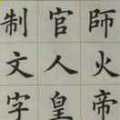 師火帝
官人皇
制文字